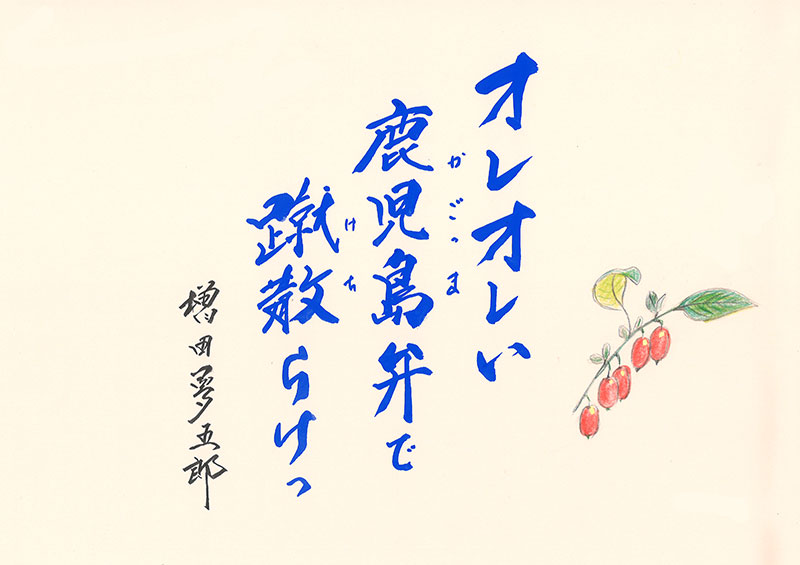 オレオレい
鹿児島弁で
かごっま
蹴散らけっ
けち
増田夢五郎